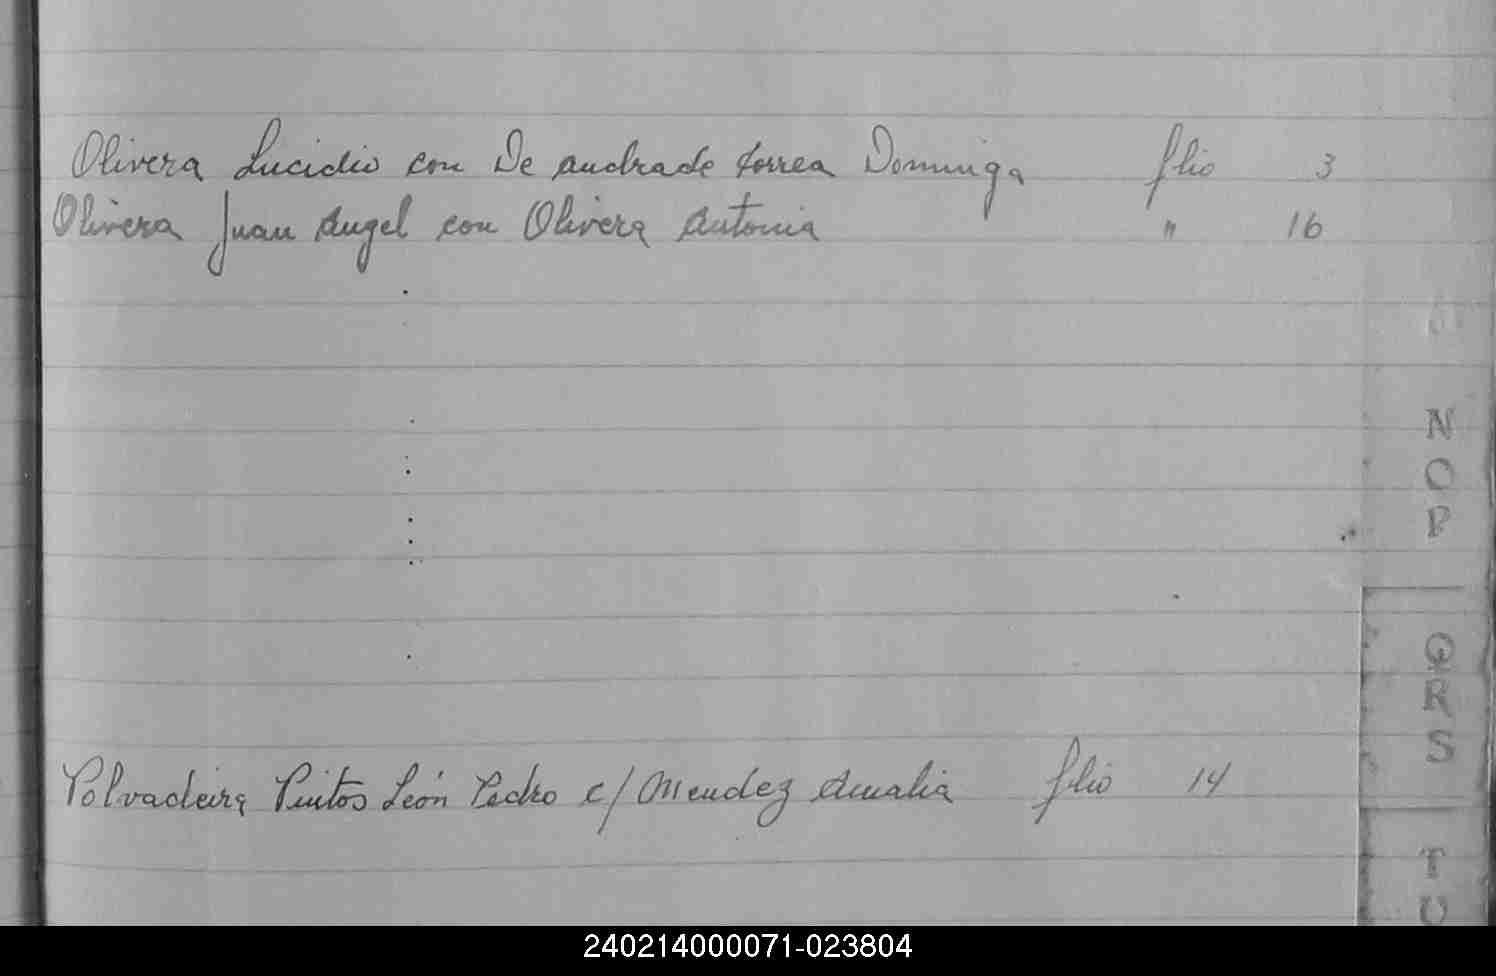 Olivera Lucidio con De andrade Correa Dominga flio 3
Olivera Juan Angel con Olivera Antonia " 16
N
O
P
Q
R
S
Polvadeira Pintos León Pedro c/ Mendez Amalia flio 14
T
U
240214000071-023804